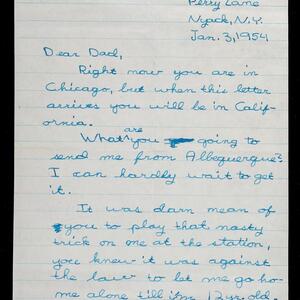 Perry Lane
Nyack, N.Y.
Jan. 3, 1954
Dear Dad,
Right now you are in
Chicago, but when this letter
arrives you will be in Calif-
ornia.
What are you going to
send me from Albequerque?
I can hardly wait to get
it.
It was darn mean of
you to play that nasty
trick on me at the station,
you knew it was against
the law to let me go ho-
me alone till I'm 12 yr. old.